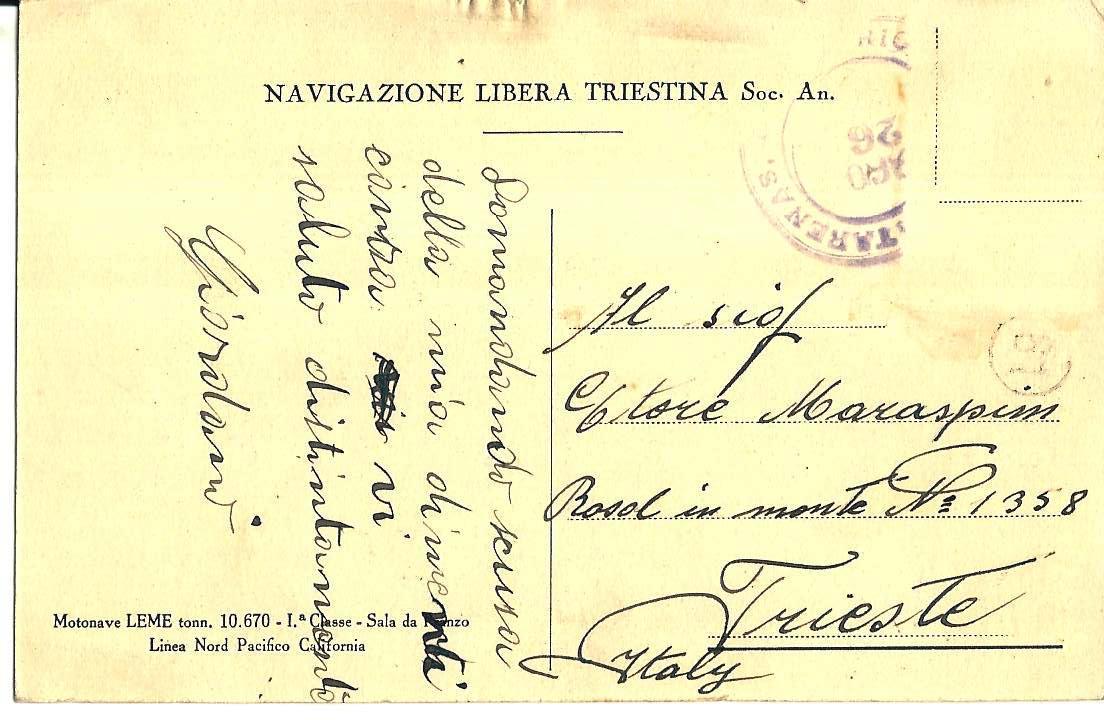 NAVIGAZIONE LIBERA TRIESTINA Soc. An.
Domandando scusa
della mia dimenti
canza vi
saluto distintamente
Giordani
TARENAS.
AGO
26
Al sig
Ettore Maraspin
Rozol in monte No 1358
Trieste
Italy
Motonave LEME tonn. 10.670 - I.ª Classe - Sala da Pranzo
Linea Nord Pacifico California